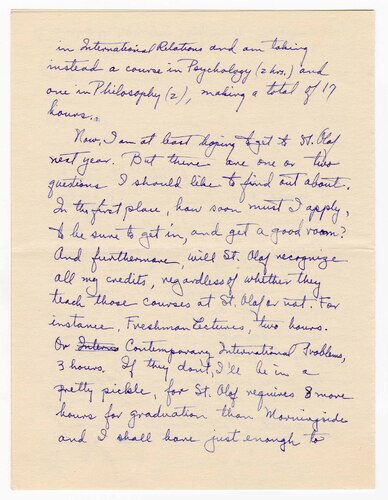 in International Relations and am taking
instead a course in Psychology (2 hrs.) and
one in Philosophy (2), making a total of 17
hours.
Now, I am at least hoping to get to St. Olaf
next year. But there are one or two
questions I should like to find out about.
In the first place, how soon must I apply,
to be sure to get in, and get a good room?
And furthermore, will St. Olaf recognize
all my credits, regardless of whether they
teach those courses at St. Olaf or not. For
instance, Freshman Lectures, two hours.
Or Interna Contemporary International Problems,
3 hours. If they don't, I'll be in a
pretty pickle, for St. Olaf requires 8 more
hours for graduation than Morningside
and I shall have just enough to